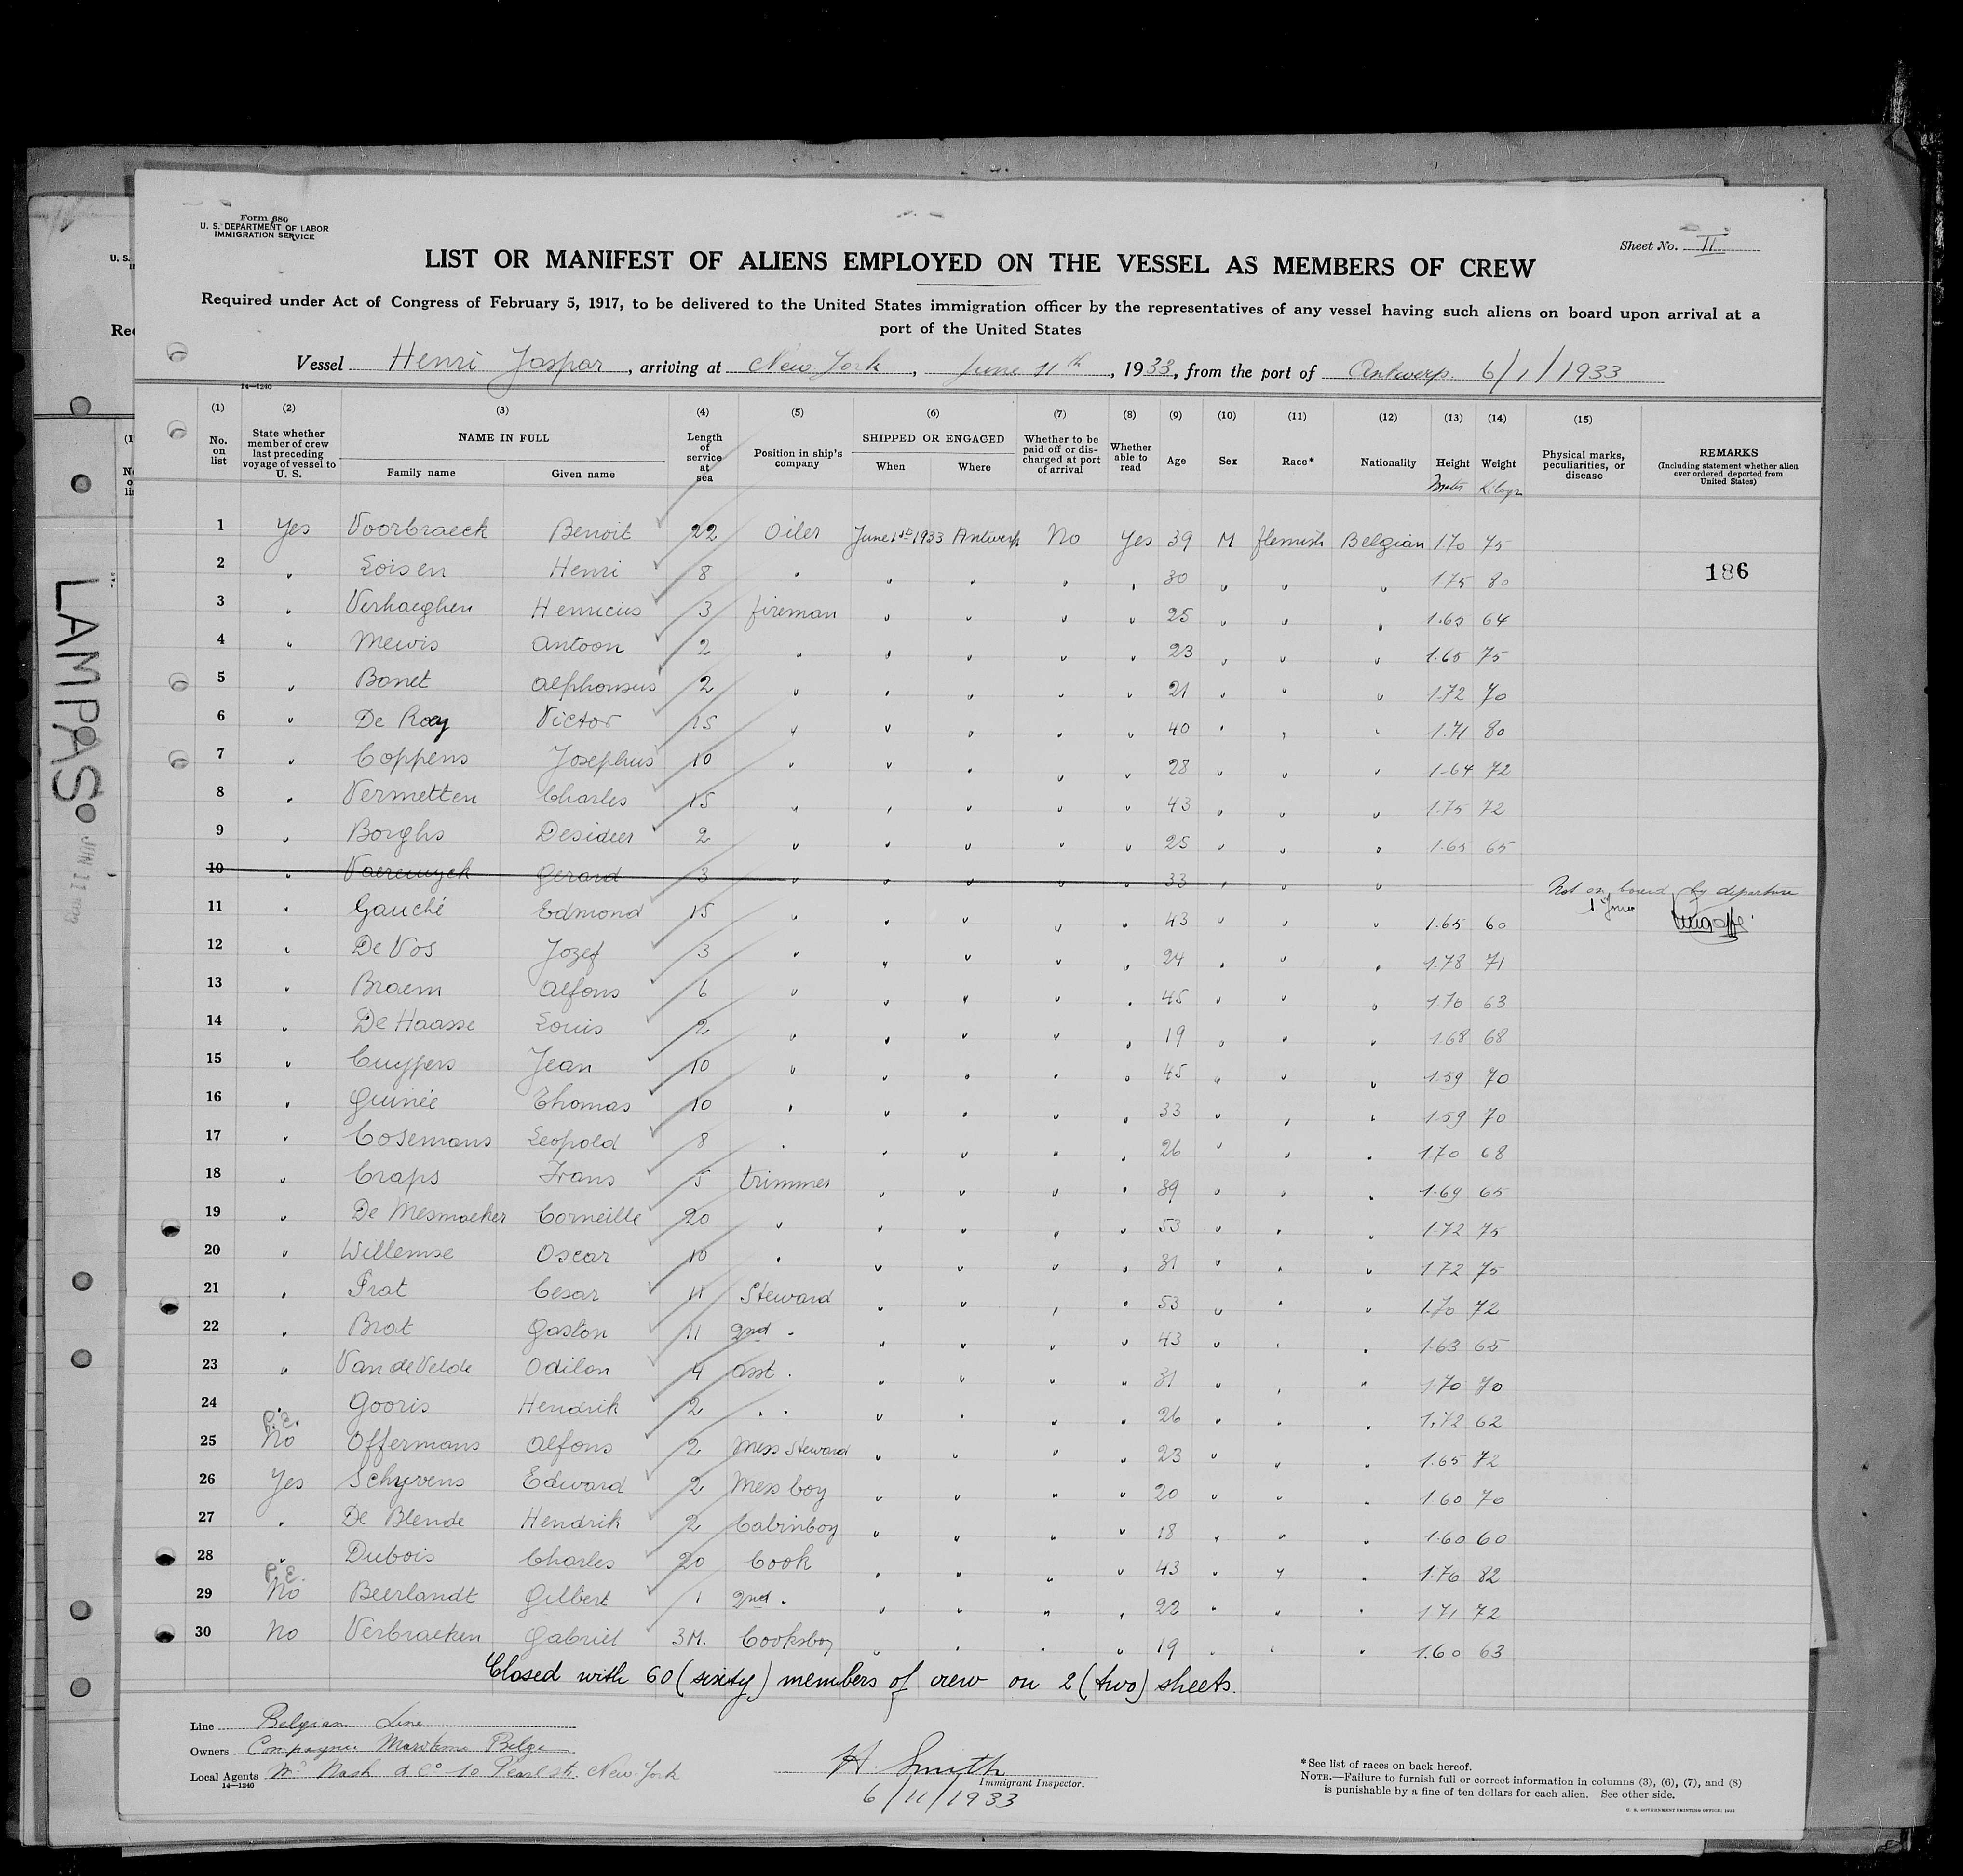 Form 680
U. S. DEPARTMENT OF LABOR
IMMIGRATION SERVICE
Sheet No. II
LIST OR MANIFEST OF ALIENS EMPLOYED ON THE VESSEL AS MEMBERS OF CREW
Required under Act of Congress of February 5, 1917, to be delivered to the United States immigration officer by the representatives of any vessel having such aliens on board upon arrival at a
port of the United States
Vessel Henri Jaspar, arriving at New York, June 11th, 1933, from the port of Antwerp. 6/1/1933
14—1240
(1) (2) (3) (4) (5) (6) (7) (8) (9) (10) (11) (12) (13) (14) (15)
No. on list State whether member of crew last preceding voyage of vessel to U. S. NAME IN FULL Family name Given name Length of service at sea Position in ship's company SHIPPED OR ENGAGED When Where Whether to be paid off or discharged at port of arrival Whether able to read Age Sex Race* Nationality Height Weight Physical marks, peculiarities, or disease REMARKS (Including statement whether alien ever ordered deported from United States)
1 Yes Voorbraeck Benoit 22 Oiler June 1st 1933 Antwerp No Yes 39 M flemish Belgian 1.70 75
2 " Loisen Henri 8 " " " " " 30 " " " 1.75 80 186
3 " Verhaeghen Henricus 3 fireman " " " " 25 " " " 1.65 64
4 " Mewis Antoon 2 " " " " " 23 " " " 1.65 75
5 " Bonet Alphonsus 2 " " " " " 21 " " " 1.72 70
6 " De Roey Victor 15 " " " " " 40 " " " 1.71 80
7 " Coppens Josephus 10 " " " " " 28 " " " 1.64 72
8 " Vermetten Charles 15 " " " " " 43 " " " 1.75 72
9 " Borghs Desideer 2 " " " " " 25 " " " 1.65 65
10 " Vaerewyck Gerard 3 " " " " " 33 " " " Not on board by departure 1 June
11 " Gauché Edmond 15 " " " " " 43 " " " 1.65 60
12 " De Vos Jozef 3 " " " " " 24 " " " 1.78 71
13 " Braem Alfons 6 " " " " " 45 " " " 1.70 63
14 " De Haasse Louis 2 " " " " " 19 " " " 1.68 68
15 " Cuypers Jean 10 " " " " " 45 " " " 1.59 70
16 " Guinée Thomas 10 " " " " " 33 " " " 1.59 70
17 " Cosemans Leopold 8 " " " " " 26 " " " 1.70 68
18 " Craps Frans 5 trimmer " " " " 39 " " " 1.69 65
19 " De Mesmaeker Corneille 20 " " " " " 53 " " " 1.72 75
20 " Willemse Oscar 10 " " " " " 31 " " " 1.72 75
21 " Prat Cesar 11 Steward " " " " 53 " " " 1.70 72
22 " Brat Gaston 11 2nd " " " " " 43 " " " 1.63 65
23 " Van de Velde Odilon 4 asst. " " " " 31 " " " 1.70 70
24 " Gooris Hendrik 2 " " " " " " 26 " " " 1.72 62
25 P.E. No Offermans Alfons 2 Mess Steward " " " " 23 " " " 1.65 72
26 Yes Schyvens Edward 2 Mess boy " " " " 20 " " " 1.60 70
27 " De Blende Hendrik 2 Cabinboy " " " " 18 " " " 1.60 60
28 " Dubois Charles 20 Cook " " " " 43 " " " 1.76 82
29 P.E. No Beerlandt Gilbert 1 2nd " " " " " 22 " " " 1.71 72
30 No Verbraeken Gabriel 3M. Cooksboy " " " " 19 " " " 1.60 63
Closed with 60 (sixty) members of crew on 2 (two) sheets.
Line Belgian Line
Owners Compagnie Maritime Belge
Local Agents Mr Nash & Co 10 Pearl St. New York
14—1240
H. Smith
Immigrant Inspector.
6/11/1933
* See list of races on back hereof.
NOTE.—Failure to furnish full or correct information in columns (3), (6), (7), and (8)
is punishable by a fine of ten dollars for each alien. See other side.
U. S. GOVERNMENT PRINTING OFFICE
LAMPAS